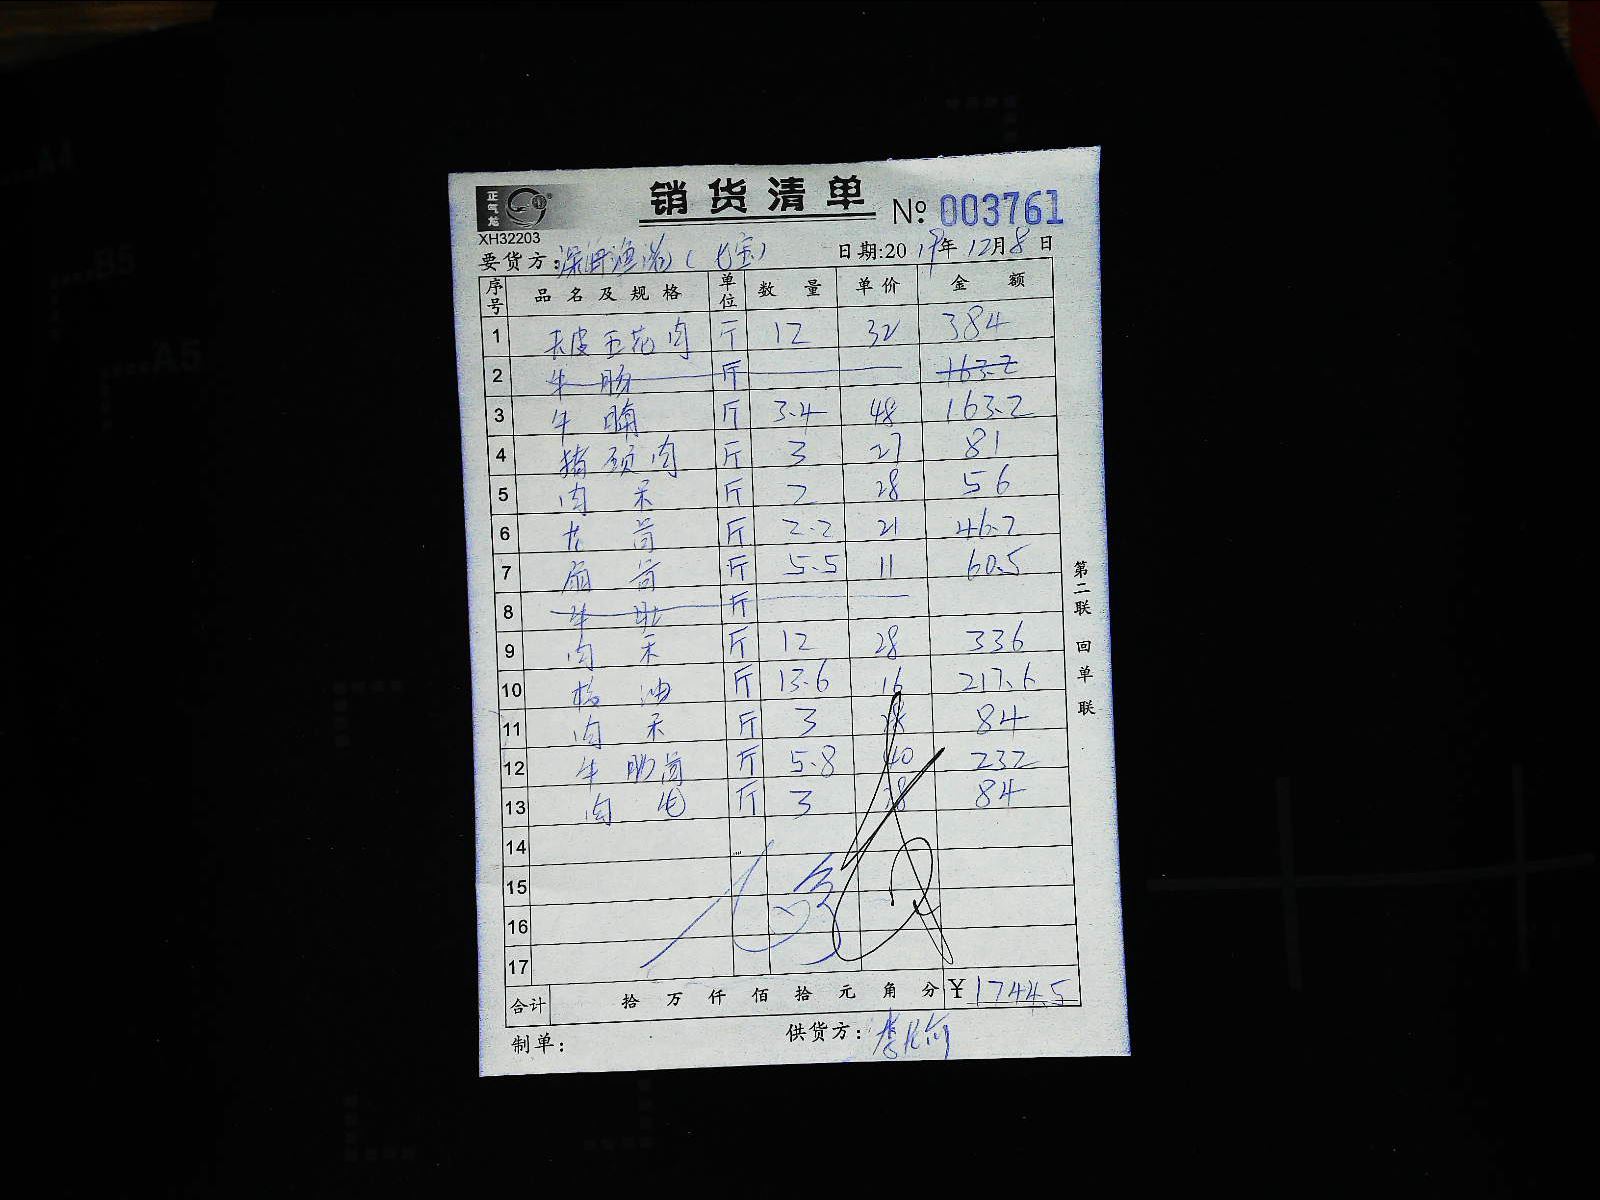 正气龙
销货清单
№ 003761
XH32203
要货方: 深井渔港(七宝) 日期:2019年12月8日
序号 品名及规格 单位 数量 单价 金额
1 去皮五花肉 斤 12 32 384
2 牛肠 斤 163.2
3 牛腩 斤 3.4 48 163.2
4 猪颈肉 斤 3 27 81
5 肉 斤 2 28 56
6 筒 斤 2.2 21 46.2
7 扇筒 斤 5.5 11 60.5
8 牛肚 斤
9 肉 斤 12 28 336
10 油 斤 13.6 16 217.6
11 肉 斤 3 28 84
12 牛筒 斤 5.8 40 232
13 肉 斤 3 28 84
14
15
16
17
合计 拾 万 仟 佰 拾 元 角 分 ¥1744.5
制单: 供货方:
第二联 回单联
A4
B5
A5